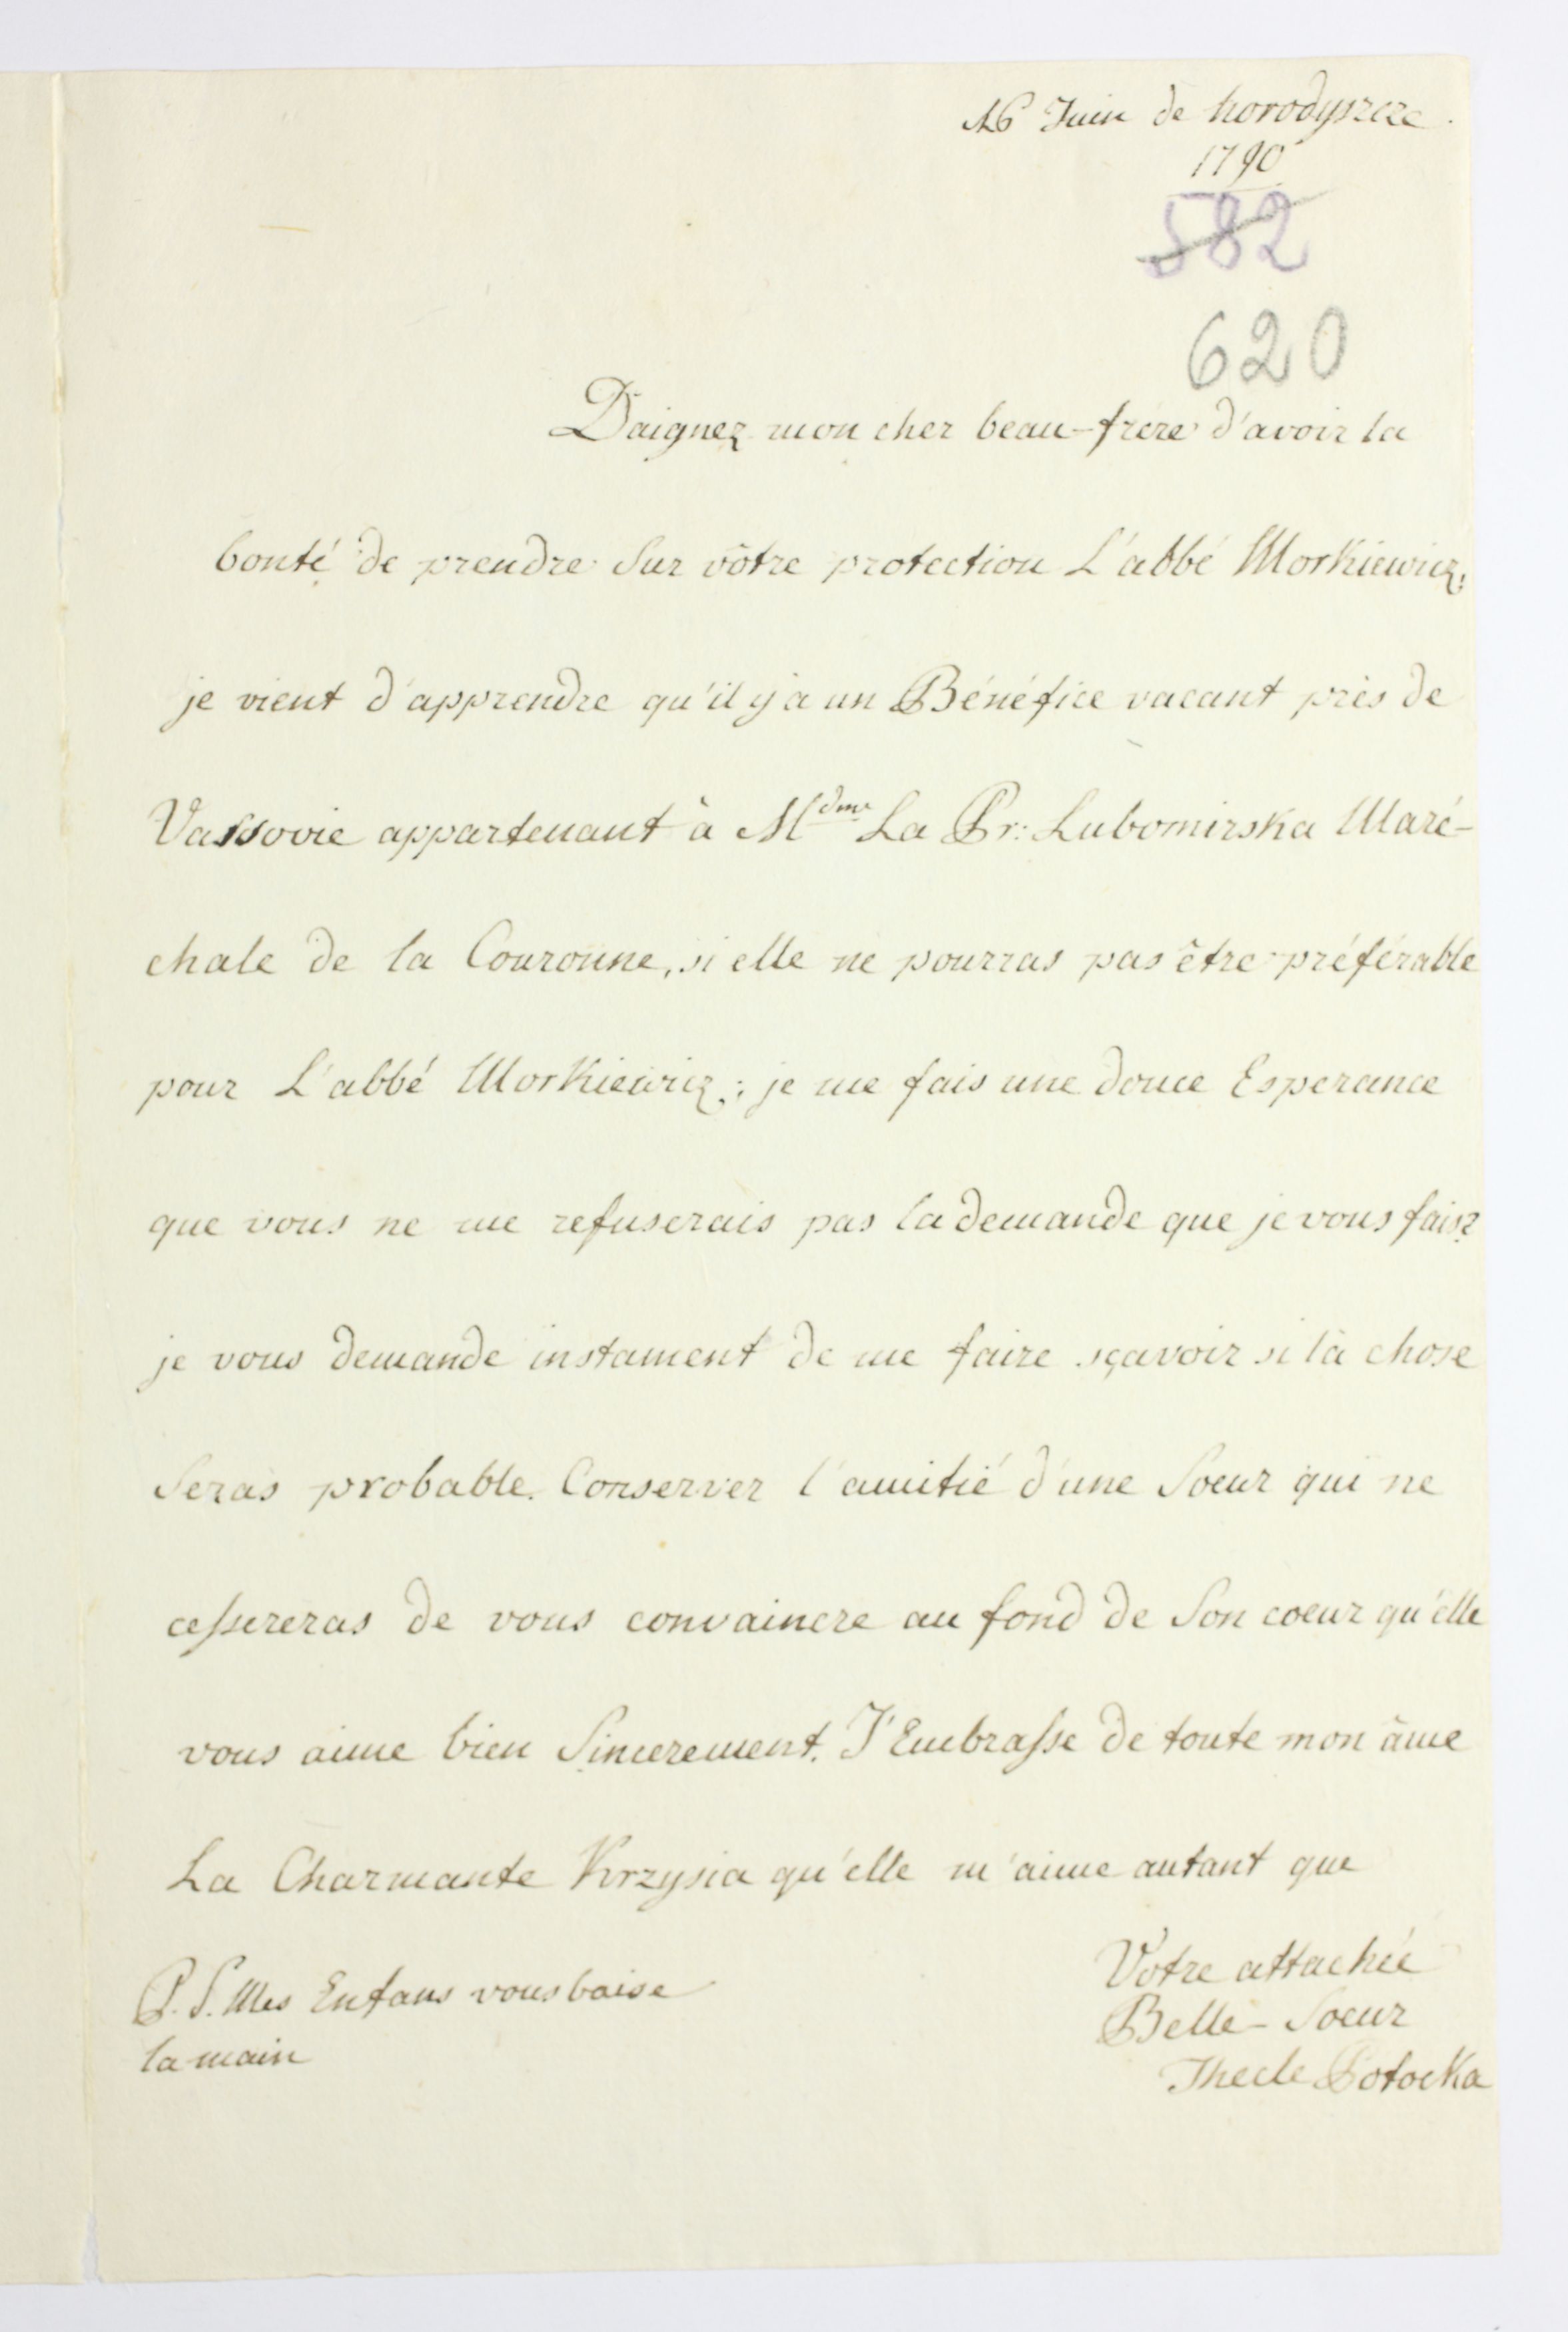 16 Juin de horodyszcze.
1790
582
620
Daignez mon cher beau-frere d'avoir la
bonté de prendre Sur vôtre protection L'abbé Morkiewicz,
je vient d'apprendre qu'il y'a un Bénéfice vacant près de
Vassovie appartenant à Mdme La Pr: Lubomirska Maré-
chale de la Couronne, si elle ne pourras pas être préférable
pour L'abbé Morkiewicz,; je me fais une douce Esperance
que vous ne me refuserais pas la demande que je vous fais?
je vous demande instament de me faire sçavoir si la chose
Seras probable. Conserver l'amitié d'une Soeur qui ne
cessereras de vous convaincre au fond de Son coeur qu'elle
vous aime bien Sincerement. J'Embrasse de toute mon âme
La Charmante Krzysia qu'elle m'aime autant que
Votre attachée
Belle-Soeur
Thecle Potocka
P.S. Mes Enfans vous baise
la main